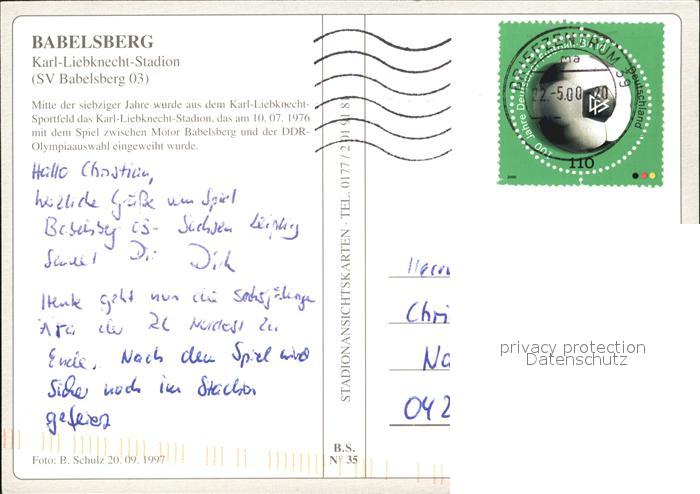 BABELSBERG
Karl-Liebknecht-Stadion
(SV Babelsberg 03)
Mitte der siebziger Jahre wurde aus dem Karl-Liebknecht-
Sportfeld das Karl-Liebknecht-Stadion, das am 10. 07. 1976
mit dem Spiel zwischen Motor Babelsberg und der DDR-
Olympiaauswahl eingeweiht wurde.
Hallo Christian,
herzliche Grüße vom Spiel
Babelsberg 03 - Sachsen Leipzig
sendet Dir Dirk
Heute geht nun die sechsjährige
Ära der RL Nordost zu
Ende. Nach dem Spiel wird
sicher noch im Stadion
gefeiert
Foto: B. Schulz 20. 09. 1997
B.S.
N° 35
STADIONANSICHTSKARTEN · TEL. 0177 /
100 Jahre Deutscher Fußball-Bund
Deutschland
110
2000
BRIEFZENTRUM 39
ma
22.-5.00-20
DFB
Herrn
Chri
Na
042
privacy protection
Datenschutz